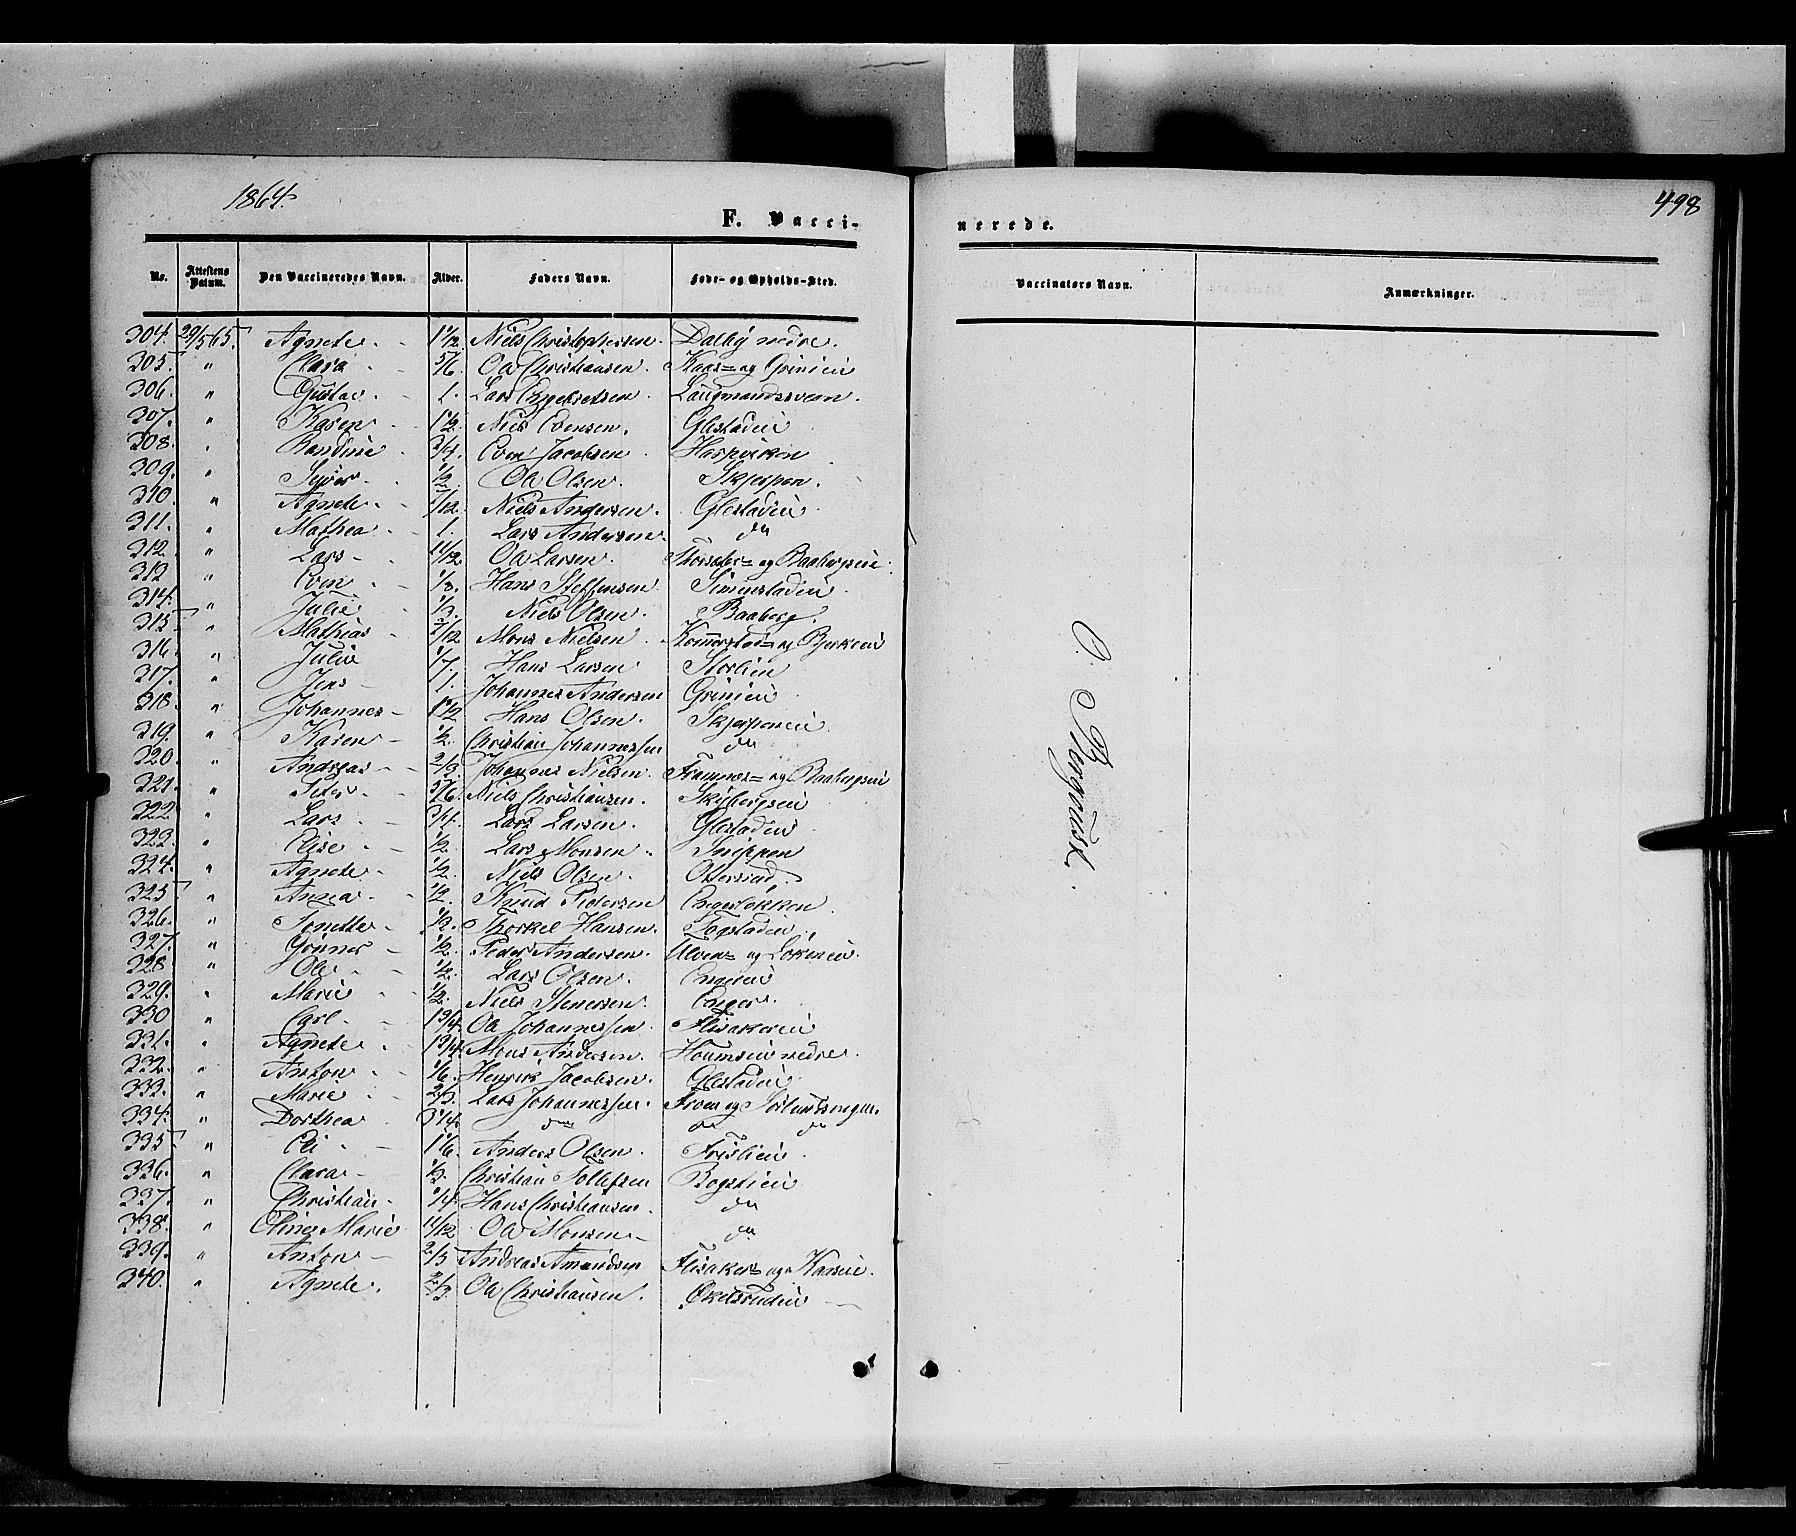 1864.
498
F. Vacci-
nerede.
No. Attestens Datum. Den Vaccineredes Navn. Alder. Faders Navn. Føde- og Opholds-Sted. Vaccinators Navn. Anmærkninger.
304. 29/5 65. Agnete 1 1/2 Niels Christophersen. Dalby nedre.
305. " Clara 5/6 Ole Christiansen. Kaas- og Grinien
306. " Gustav 1. Lars Engebretsen Laugmandsveen.
307. " Karen 1 1/2 Niels Evensen. Glestadeie
308. " Randine 3/4. Even Jacobsen
309. " Syver 1/2. Ole Olsen. Skjerpen.
310. " Agnete 7/12. Niels Andersen. Glestadeie
311. " Mathea 1. Lars Andersen. do
312. " Lars 11/12 Ole Larsen. og Baabergseie.
313 " Even 1/3. Hans Steffensen Simenstadeie
314. " Julie 1/3. Niels Olsen. Baaberg.
315 " Mathias 7/12 Mons Nielsen og Bjerkeeie
316. " Julie 1/7. Hans Larsen Storlien
317. " Jens 1. Johannes Andersen Grinieie
318. " Johannes 1 1/2 Hans Olsen. Skjerpeneie
319. " Karen 1/2. Christian Johannessen do
320. " Andreas 2/3. Johannes Nielsen. og Baabergseie
321. " Peter 5/6. Niels Christiansen. Skybergseie
322 " Lars 3/4. Lars Larsen. Glestadeie
323. " Elise 1/2. Lars Monsen. Snippen
324. " Agnete 1/2. Niels Olsen.
325 " Anna 1/2. Knud Pedersen Engeløkken
326. " Sonette 1/2. Thorkel Hansen.
327. " Gunner 1/2. Peder Andersen. Ulven- og
328 " Ole 1/2. Lars Olsen. Engeeie
329. " Marie 1/2. Niels Stenersen Enger.
330 " Carl 1 3/4. Ole Johannessen. Flisakereie
331. " Agnete 1 3/4 Mons Andersen. nedre.
332. " Anton 1/6. Henrik Jacobsen. Glestadeie
333. " Marie 2/3. Lars Johannessen. og
334. " Dorthea 3 1/4. do do do
335 " Eli 1 1/6. Anders Olsen. Frislien.
336. " Clara 1/3. Christian Tollefsen Bogslien
337. " Christian 1/4. Hans Christiansen. do
338. " Eline Marie 11/12 Ole Monsen do
339. " Anton 2/5 Andreas Amundsen Flisaker- og Kaaseie.
340. " Agnete. 2/3 Ole Christiansen. Økelsrudeie